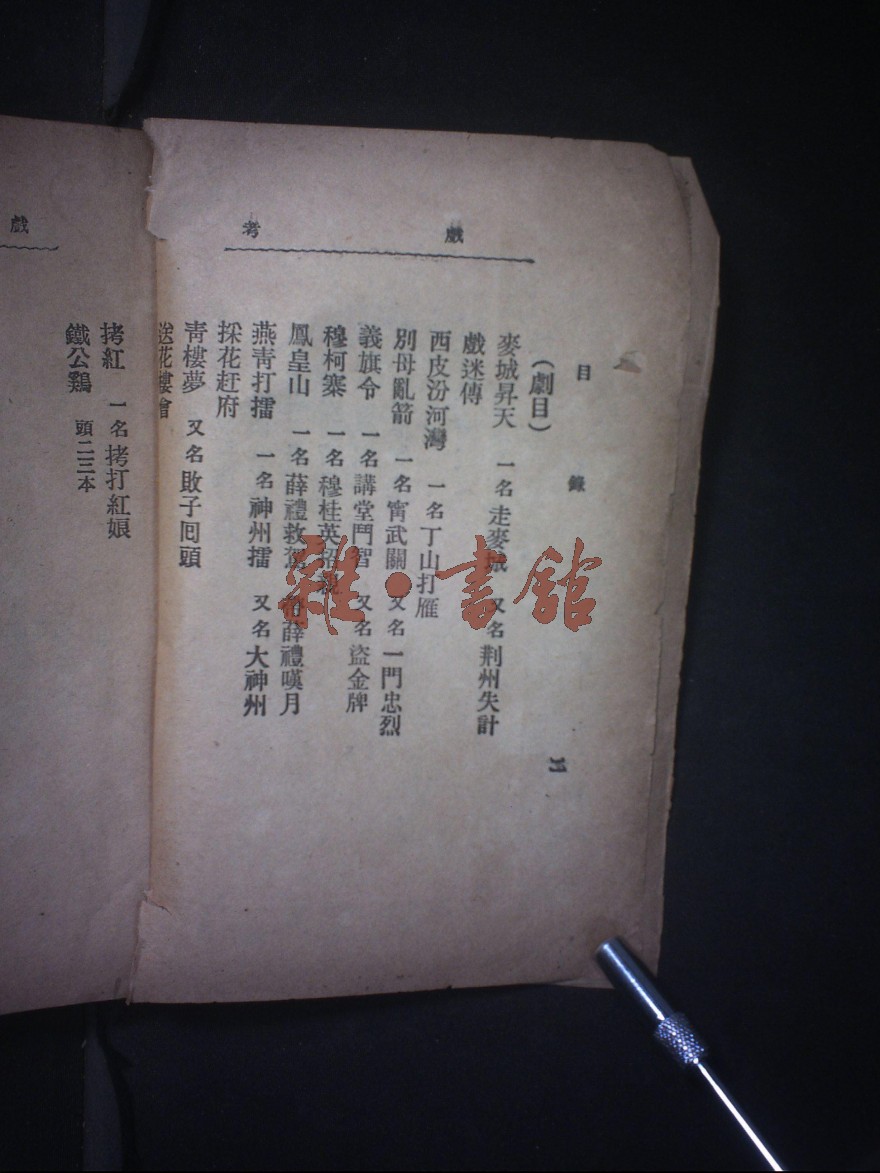 戲考
目錄
(劇目)
麥城昇天 一名 走麥城 又名 荆州失計
戲迷傳
西皮汾河灣 一名 丁山打雁
別母亂箭 一名 甯武關 又名 一門忠烈
義旗令 一名 講堂鬥智 又名 盜金牌
穆柯寨 一名 穆桂英招
鳳皇山 一名 薛禮救駕 薛禮嘆月
燕青打擂 一名 神州擂 又名 大神州
採花赶府
青樓夢 又名 敗子囘頭
送花樓會
戲
拷紅 一名 拷打紅娘
鐵公鷄 頭二三本
雜·書館